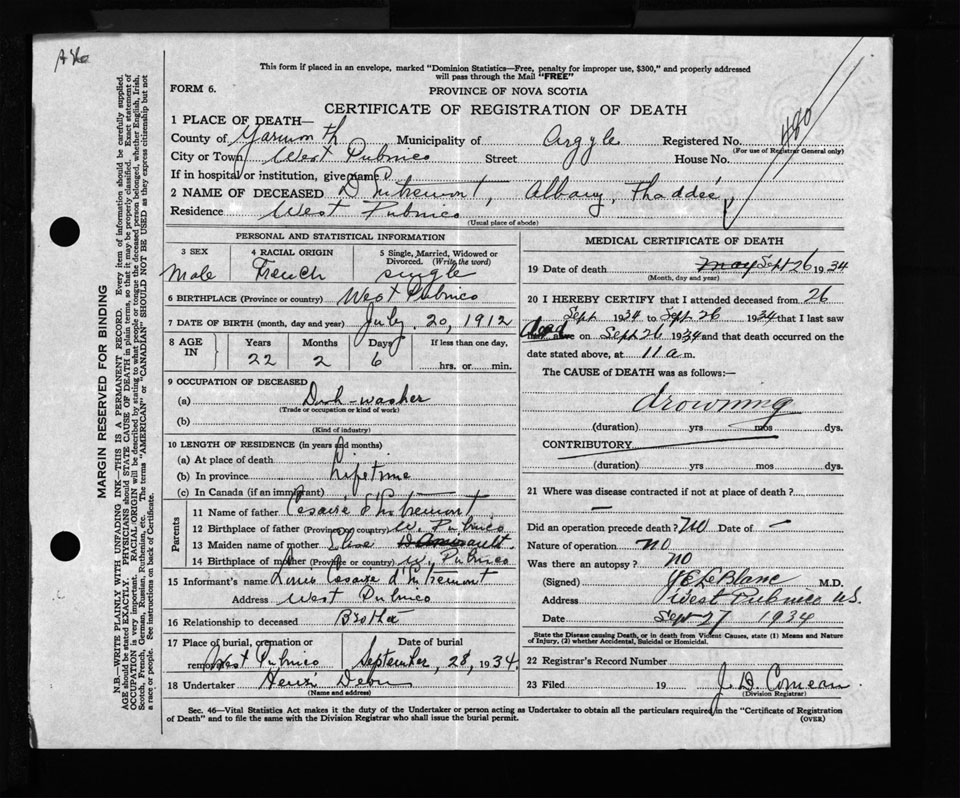 This form if placed in an envelope, marked "Dominion Statistics—Free, penalty for improper use, $300," and properly addressed
will pass through the Mail "FREE"
FORM 6.
PROVINCE OF NOVA SCOTIA
CERTIFICATE OF REGISTRATION OF DEATH
480
1 PLACE OF DEATH—
County of Yarmouth Municipality of Argyle Registered No.
(For use of Registrar General only)
City or Town West Pubnico Street House No.
If in hospital or institution, give name
2 NAME OF DECEASED D'Entremont, Albany, Thaddée
Residence West Pubnico
(Usual place of abode)
PERSONAL AND STATISTICAL INFORMATION
3 SEX 4 RACIAL ORIGIN 5 Single, Married, Widowed or
Divorced. (Write the word)
Male French single
6 BIRTHPLACE (Province or country) West Pubnico
7 DATE OF BIRTH (month, day and year) July 20, 1912
8 AGE IN Years Months Days If less than one day,
22 2 6 hrs. or min.
9 OCCUPATION OF DECEASED
(a) Dish-washer
(Trade or occupation or kind of work)
(b)
(Kind of industry)
10 LENGTH OF RESIDENCE (in years and months)
(a) At place of death
(b) In province Lifetime
(c) In Canada (if an immigrant)
Parents
11 Name of father Cesaire d'Entremont
12 Birthplace of father (Province or country) W. Pubnico
13 Maiden name of mother
14 Birthplace of mother (Province or country) W. Pubnico
15 Informant's name Louis Cesaire d'Entremont
Address West Pubnico
16 Relationship to deceased Brother
17 Place of burial, cremation or Date of burial
removal West Pubnico September, 28, 1934.
18 Undertaker
(Name and address)
MEDICAL CERTIFICATE OF DEATH
19 Date of death May Sept 26 1934
(Month, day and year)
20 I HEREBY CERTIFY that I attended deceased from 26
Sept 1934 to Sept 26 1934 that I last saw
dead alive on Sept 26 1934 and that death occurred on the
date stated above, at 11 a.m.
The CAUSE of DEATH was as follows:—
drowning
(duration) yrs mos dys.
CONTRIBUTORY
(duration) yrs mos dys.
21 Where was disease contracted if not at place of death?
—
Did an operation precede death? No Date of —
Nature of operation no
Was there an autopsy? no
(Signed) LeBlanc M.D.
Address West Pubnico N.S.
Date Sept 27 1934
State the Disease causing Death, or in death from Violent Causes, state (1) Means and Nature
of Injury, (2) whether Accidental, Suicidal or Homicidal.
22 Registrar's Record Number
23 Filed 19 J. D. Comeau
(Division Registrar)
Sec. 46—Vital Statistics Act makes it the duty of the Undertaker or person acting as Undertaker to obtain all the particulars required in the "Certificate of Registration
of Death" and to file the same with the Division Registrar who shall issue the burial permit.
(OVER)
MARGIN RESERVED FOR BINDING
N.B.—WRITE PLAINLY, WITH UNFADING INK—THIS IS A PERMANENT RECORD. Every item of information should be carefully supplied.
AGE should be stated EXACTLY. PHYSICIANS should STATE CAUSE OF DEATH in plain terms, so that it may be properly classified. Exact statement of
OCCUPATION is very important. RACIAL ORIGIN will be described by stating to what people or tongue the deceased person belonged, whether English, Irish,
Scotch, French, German, Russian, Ruthenian, etc. The terms "AMERICAN" or "CANADIAN" SHOULD NOT BE USED as they express citizenship but not
a race or people. See instructions on back of Certificate.